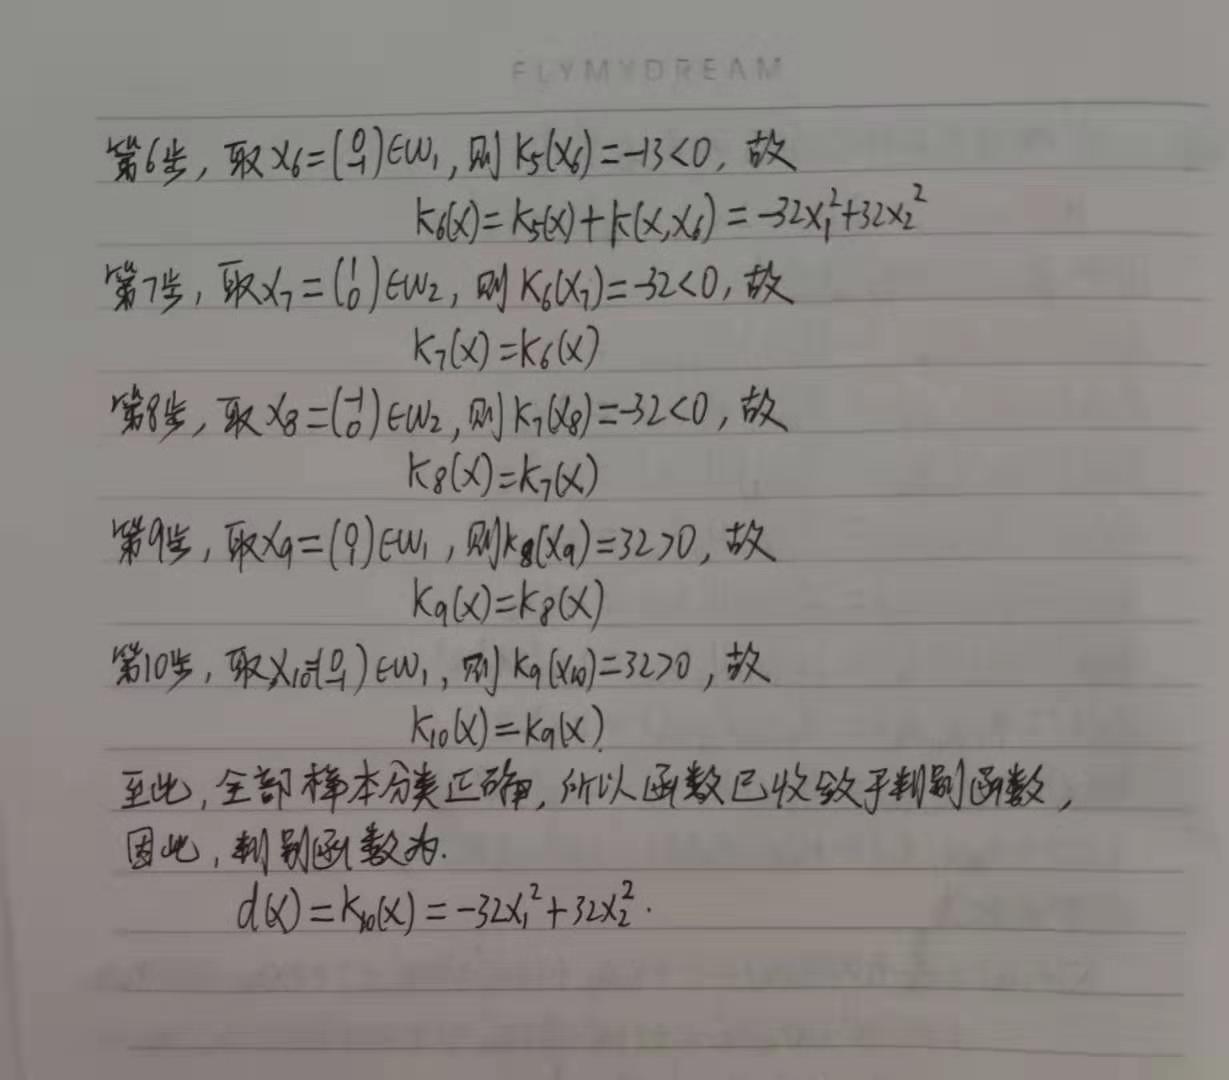 FLYMYDREAM
第6步,取X₆=(0 -1)∈W₁,则K₅(X₆)=-13<0,故
K₆(X)=K₅(X)+K(X,X₆)=-32X₁²+32X₂²
第7步,取X₇=(1 0)∈W₂,则K₆(X₇)=-32<0,故
K₇(X)=K₆(X)
第8步,取X₈=(-1 0)∈W₂,则K₇(X₈)=-32<0,故
K₈(X)=K₇(X)
第9步,取X₉=(0 1)∈W₁,则K₈(X₉)=32>0,故
K₉(X)=K₈(X)
第10步,取X₁₀=(0 -1)∈W₁,则K₉(X₁₀)=32>0,故
K₁₀(X)=K₉(X)
至此,全部样本分类正确,所以函数已收敛于判别函数,
因此,判别函数为.
d(X)=K₁₀(X)=-32X₁²+32X₂².